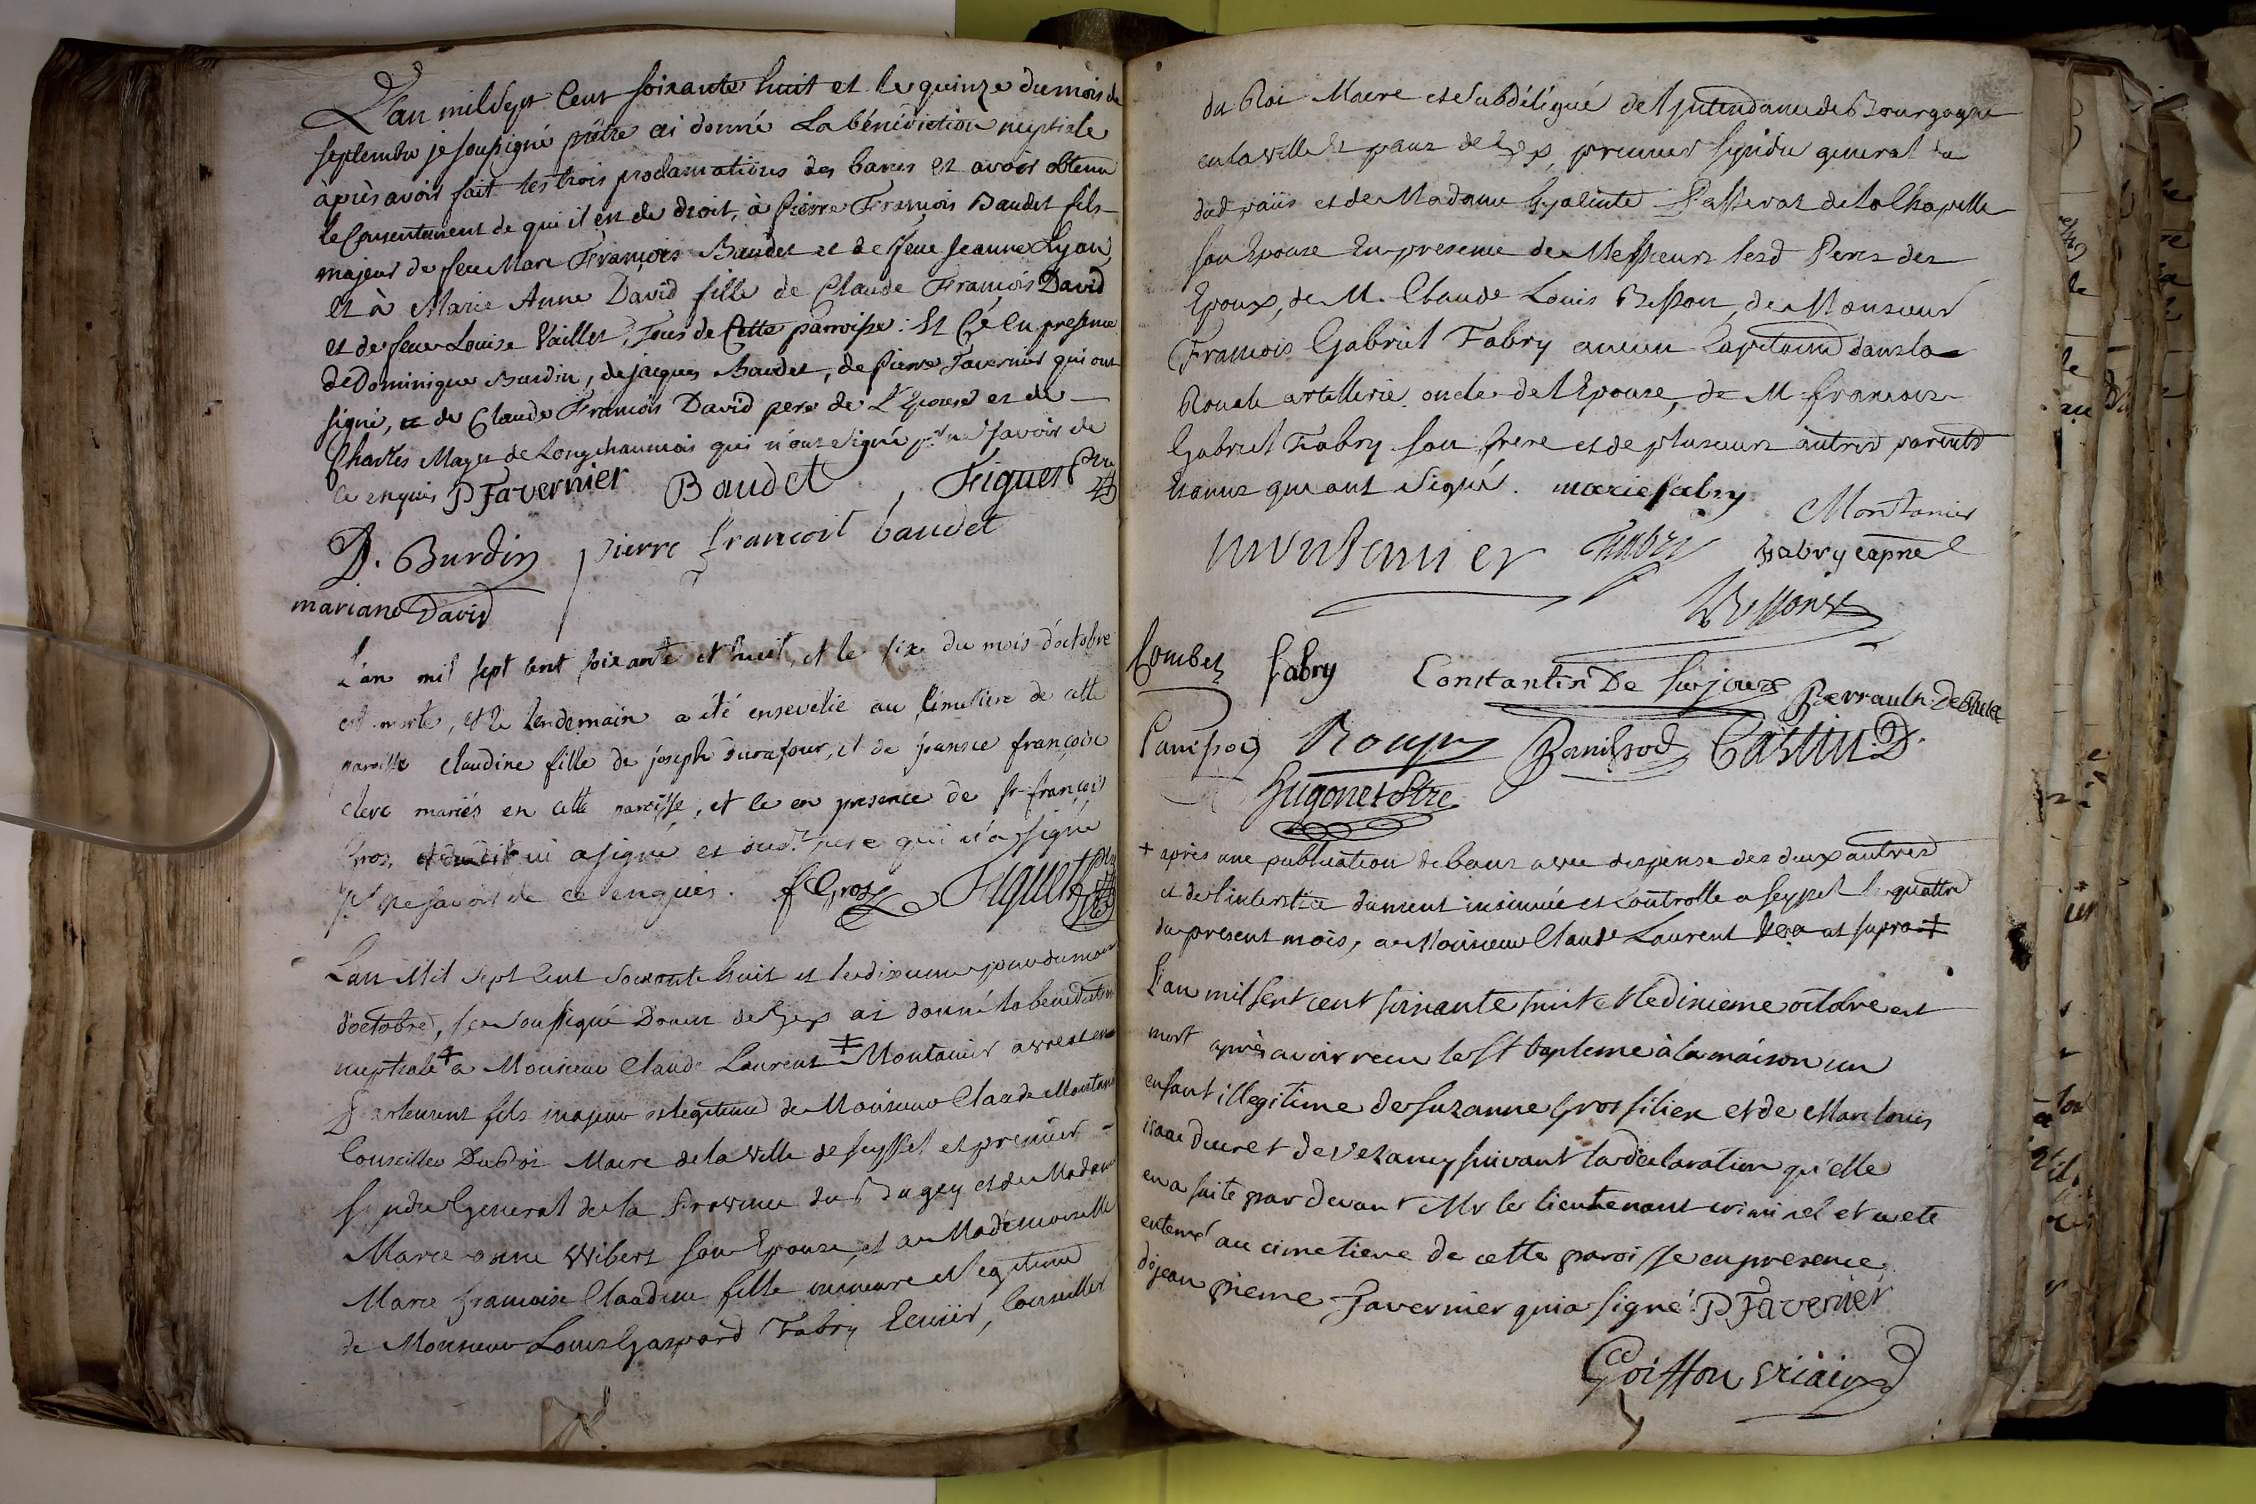 L'an mil sept cent soixante huit et le quinze du mois de
septembre je soussigné prêtre ai donné la bénédiction nuptiale
après avoir fait les trois proclamations des bancs et avoir obtenu
le consentement de qui il est de droit, à Pierre François Baudet fils
majeur de feu Marc François Baudet et de feue Jeanne Lyon,
et à Marie Anne David fille de Claude François David
et de feue Louise Vaillet, Tous de Cette parroisse : Et Ce en presence
de Dominique Burdin, de jacques Baudet, de Pierre Tavernier qui ont
signé, et de Claude François David pere de L'Epouse et de
Charles Mayet de Longchaumois qui n'ont signé pr ne savoir de
ce enquis P Tavernier Baudet Figuet Ptre
D. Burdin pierre françoit baudet
mariane David
L'an mil sept cent soixante et huit, et le six du mois d'octobre
est morte, et le lendemain a été ensevelie au cimetiere de cette
paroisse claudine fille de joseph durafour, et de françoise
clerc mariés en cette paroisse, et ce en presence de sr françois
Gros, qui a signé et dud. pere qui n'a signé
pr ne savoir de ce enquis. f Gros Figuet Ptre
L'an Mil sept Cent soixante huit et le dixieme jour du mois
d'octobre, je soussigné Doyen de Gex ai donné la benediction
nuptiale + a Monsieur Claude Laurent ‡ Montanier
fils majeur et legitime de Monsieur Claude Montanier
Conseiller Du Roi Maire de la ville de seyssel et premier
sindic General de la Province du Bugey et de Madame
Marie anne Wibert son Epouse, et a Mademoiselle
Marie françoise Claudine fille mineure et legitime
de Monsieur Louis Gaspard Fabry Ecuier, Conseiller
du Roi Maire et Subdélégué de l'Intendance de Bourgogne
en la ville et païs de Gex, premier sindic general du
dud païis et de Madame hyacinte Passerat de la Chapelle
son Epouse En presence de Messieurs lesd Peres des
Epoux, de M. Claude Louis Besson, de Monsieur
François Gabriel Fabry ancien Capitaine dans la
Roiale artillerie oncle de l'Epouse, de M françois
Gabriel Fabry son frere et de plusieurs autres parents
et amis qui ont signé. marie fabry Montanier
montanier fabry fabry capne
Besson
Combet fabry Constantin De surjoux Perrault De Rutet
Panissod Rouph Panissod Castin D.
Hugonet Ptre
+ après une publication de bans avec dispense des deux autres
et de l'interstice dument insinuée et Controllé a seyssel le quattre
du present mois, a Monsieur Claude Laurent ut supra ‡
L'an mil sept cent soixante huit et le dixieme octobre est
mort après avoir reçu le St bapteme à la maison un
enfant illegitime de suzanne Gros filiex et de Marc louis
isaac ducret de vezancy suivant la declaration qu'elle
en a faite par devant Mr le lieutenant criminel et a eté
enterré au cimetiere de cette paroisse en presence
de jean pierre Tavernier qui a signé P Tavernier
Goiffon vicaire